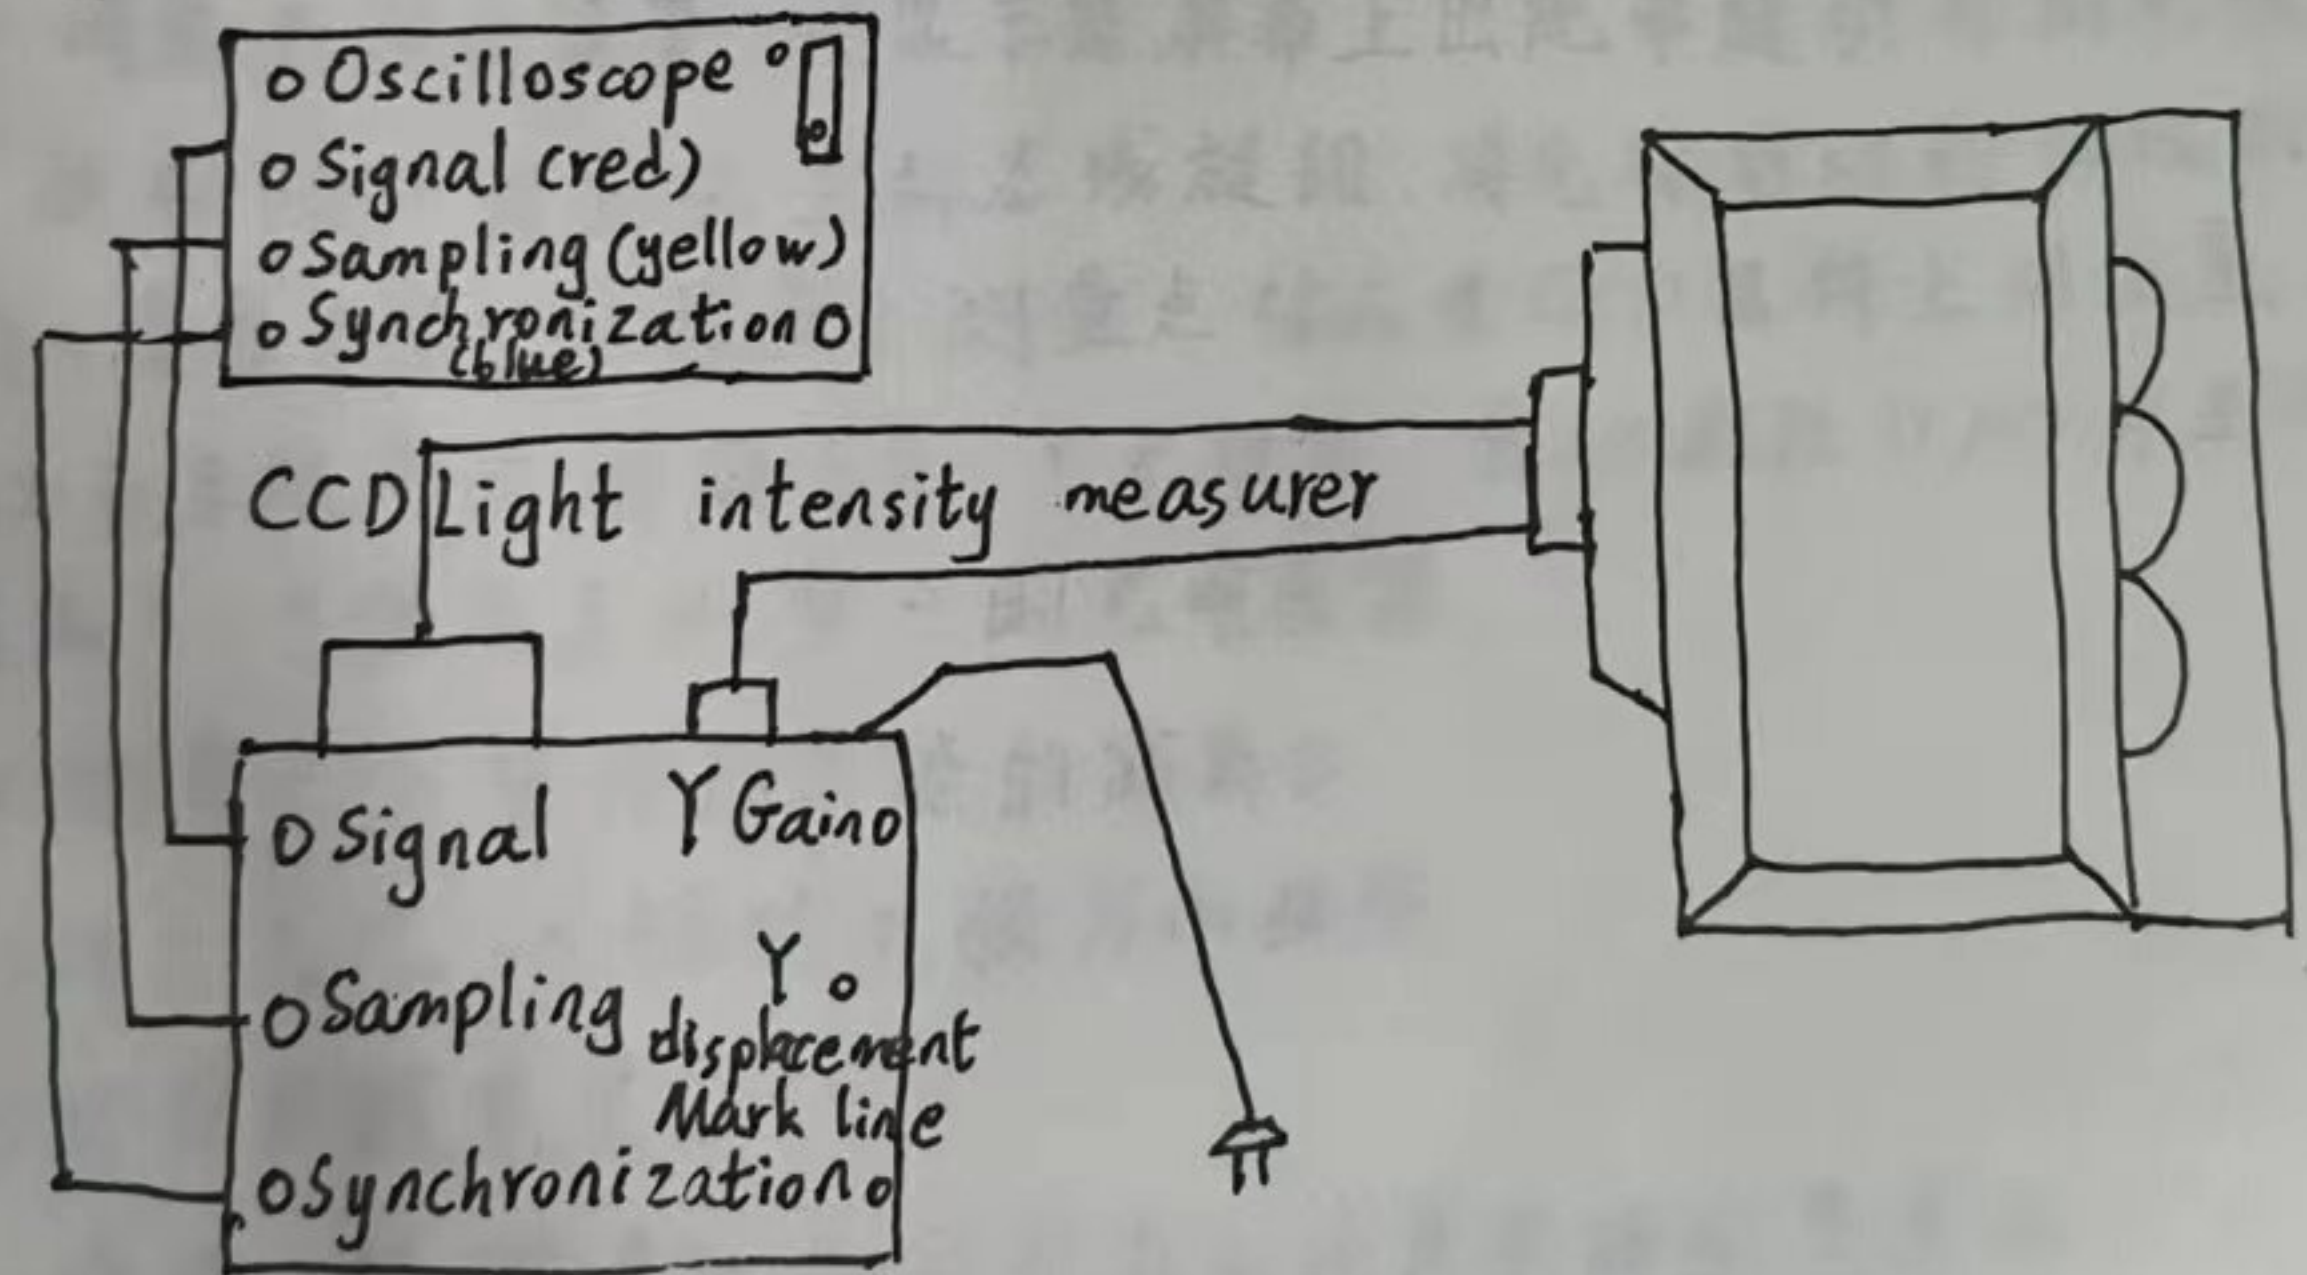 Oscilloscope
Signal (red)
Sampling (yellow)
Synchronization
(blue)
CCD Light intensity measurer
Signal
Y Gain
Sampling
Y
displacement
Mark line
Synchronization